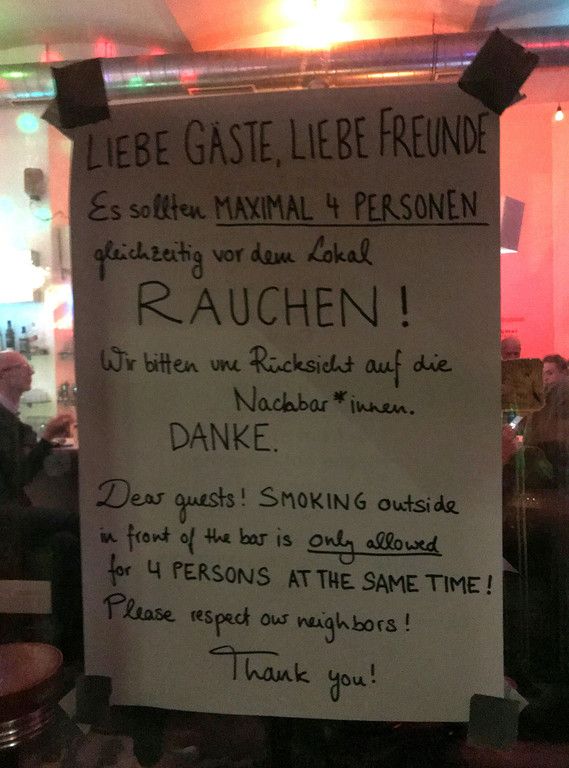 LIEBE GÄSTE, LIEBE FREUNDE
Es sollten MAXIMAL 4 PERSONEN
gleichzeitig vor dem Lokal
RAUCHEN!
Wir bitten um Rücksicht auf die
Nachbar*innen.
DANKE.
Dear guests! SMOKING outside
in front of the bar is only allowed
for 4 PERSONS AT THE SAME TIME!
Please respect our neighbors!
Thank you!